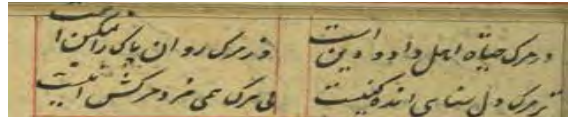 در مرک حیاة اهل داد و دین است وز مرک روان پاک را تمکین است
نز مرک دل سنایی اندهکینست بی مرک همی میرد و مرکش اینست